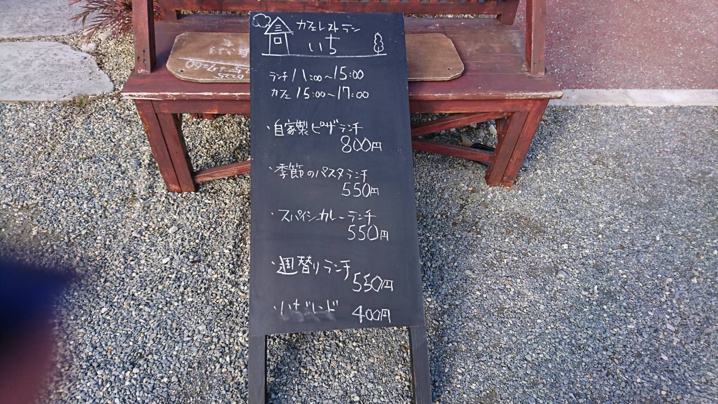 カフェレストラン
いち
ランチ 11:00～15:00
カフェ 15:00～17:00
・自家製ピザランチ
800円
・季節のパスタランチ
550円
・スパイシーカレーランチ
550円
・週替りランチ
550円
400円